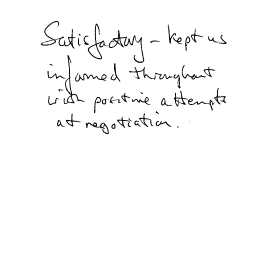 Satisfactory - kept us
informed throughout
with positive attempts
at negotiation.